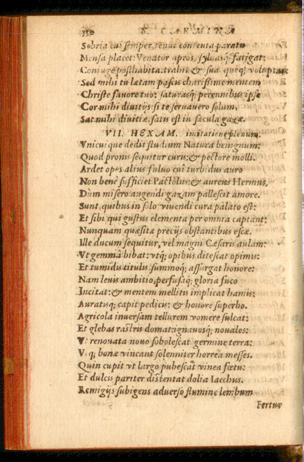 350 S. CARMINA
Sobria cui semper, tenui contenta paratu
Mensa placet: Venator apros, syluasq; fatiget:
Coniuge posthabita: trahit & sua quenq; voluptas
Sed mihi tu latam pascis charissime mentem
Christe fauore tuo: saturasq; perennibus ipse
Cor mihi diuitijs: si te seruauero solum,
Sat mihi diuitiæ, satu est in sæcula gazæ.
VII. HEXAM. imitatione plenum.
Vnicuique dedit studium Natura benignum:
Quod pronis sequitur curis: & pectore molli.
Ardet opes alius fuluo cui turbidus auro
Non bene sufficiet Pactolus: & aureus Hermus,
Dum misero augendi gazam pallescit amore.
Sunt, quibus in solo viuendi cura palato est:
Et sibi qui gustus elementa per omnia captant:
Nunquam quæsita precijs obstantibus escæ.
Ille ducem sequitur, vel magni Cæsaris aulam:
Vt gemma bibat: vtq; opibus ditescat opimis:
Et tumidu titulis summoq; assurgat honore:
Nam leuis ambitio, perfusiq; gloria fuco
Incitat: & mentem mellitis implicat hamis:
Auratuq; capit pedicis: & honore superbo.
Agricola inuersam tellurem vomere sulcat:
Et glebas rastris domat: ignauosq; noualos:
Vt renouata nouo sobolescat germine terra:
Vtq; bonæ vincant solenniter horrea messes.
Quin cupit vt largo pubescat vinea fœtu:
Et dulcis pariter distentat dolia Iacchus.
Remigijs subigens aduerso flumine lembum
Fertur